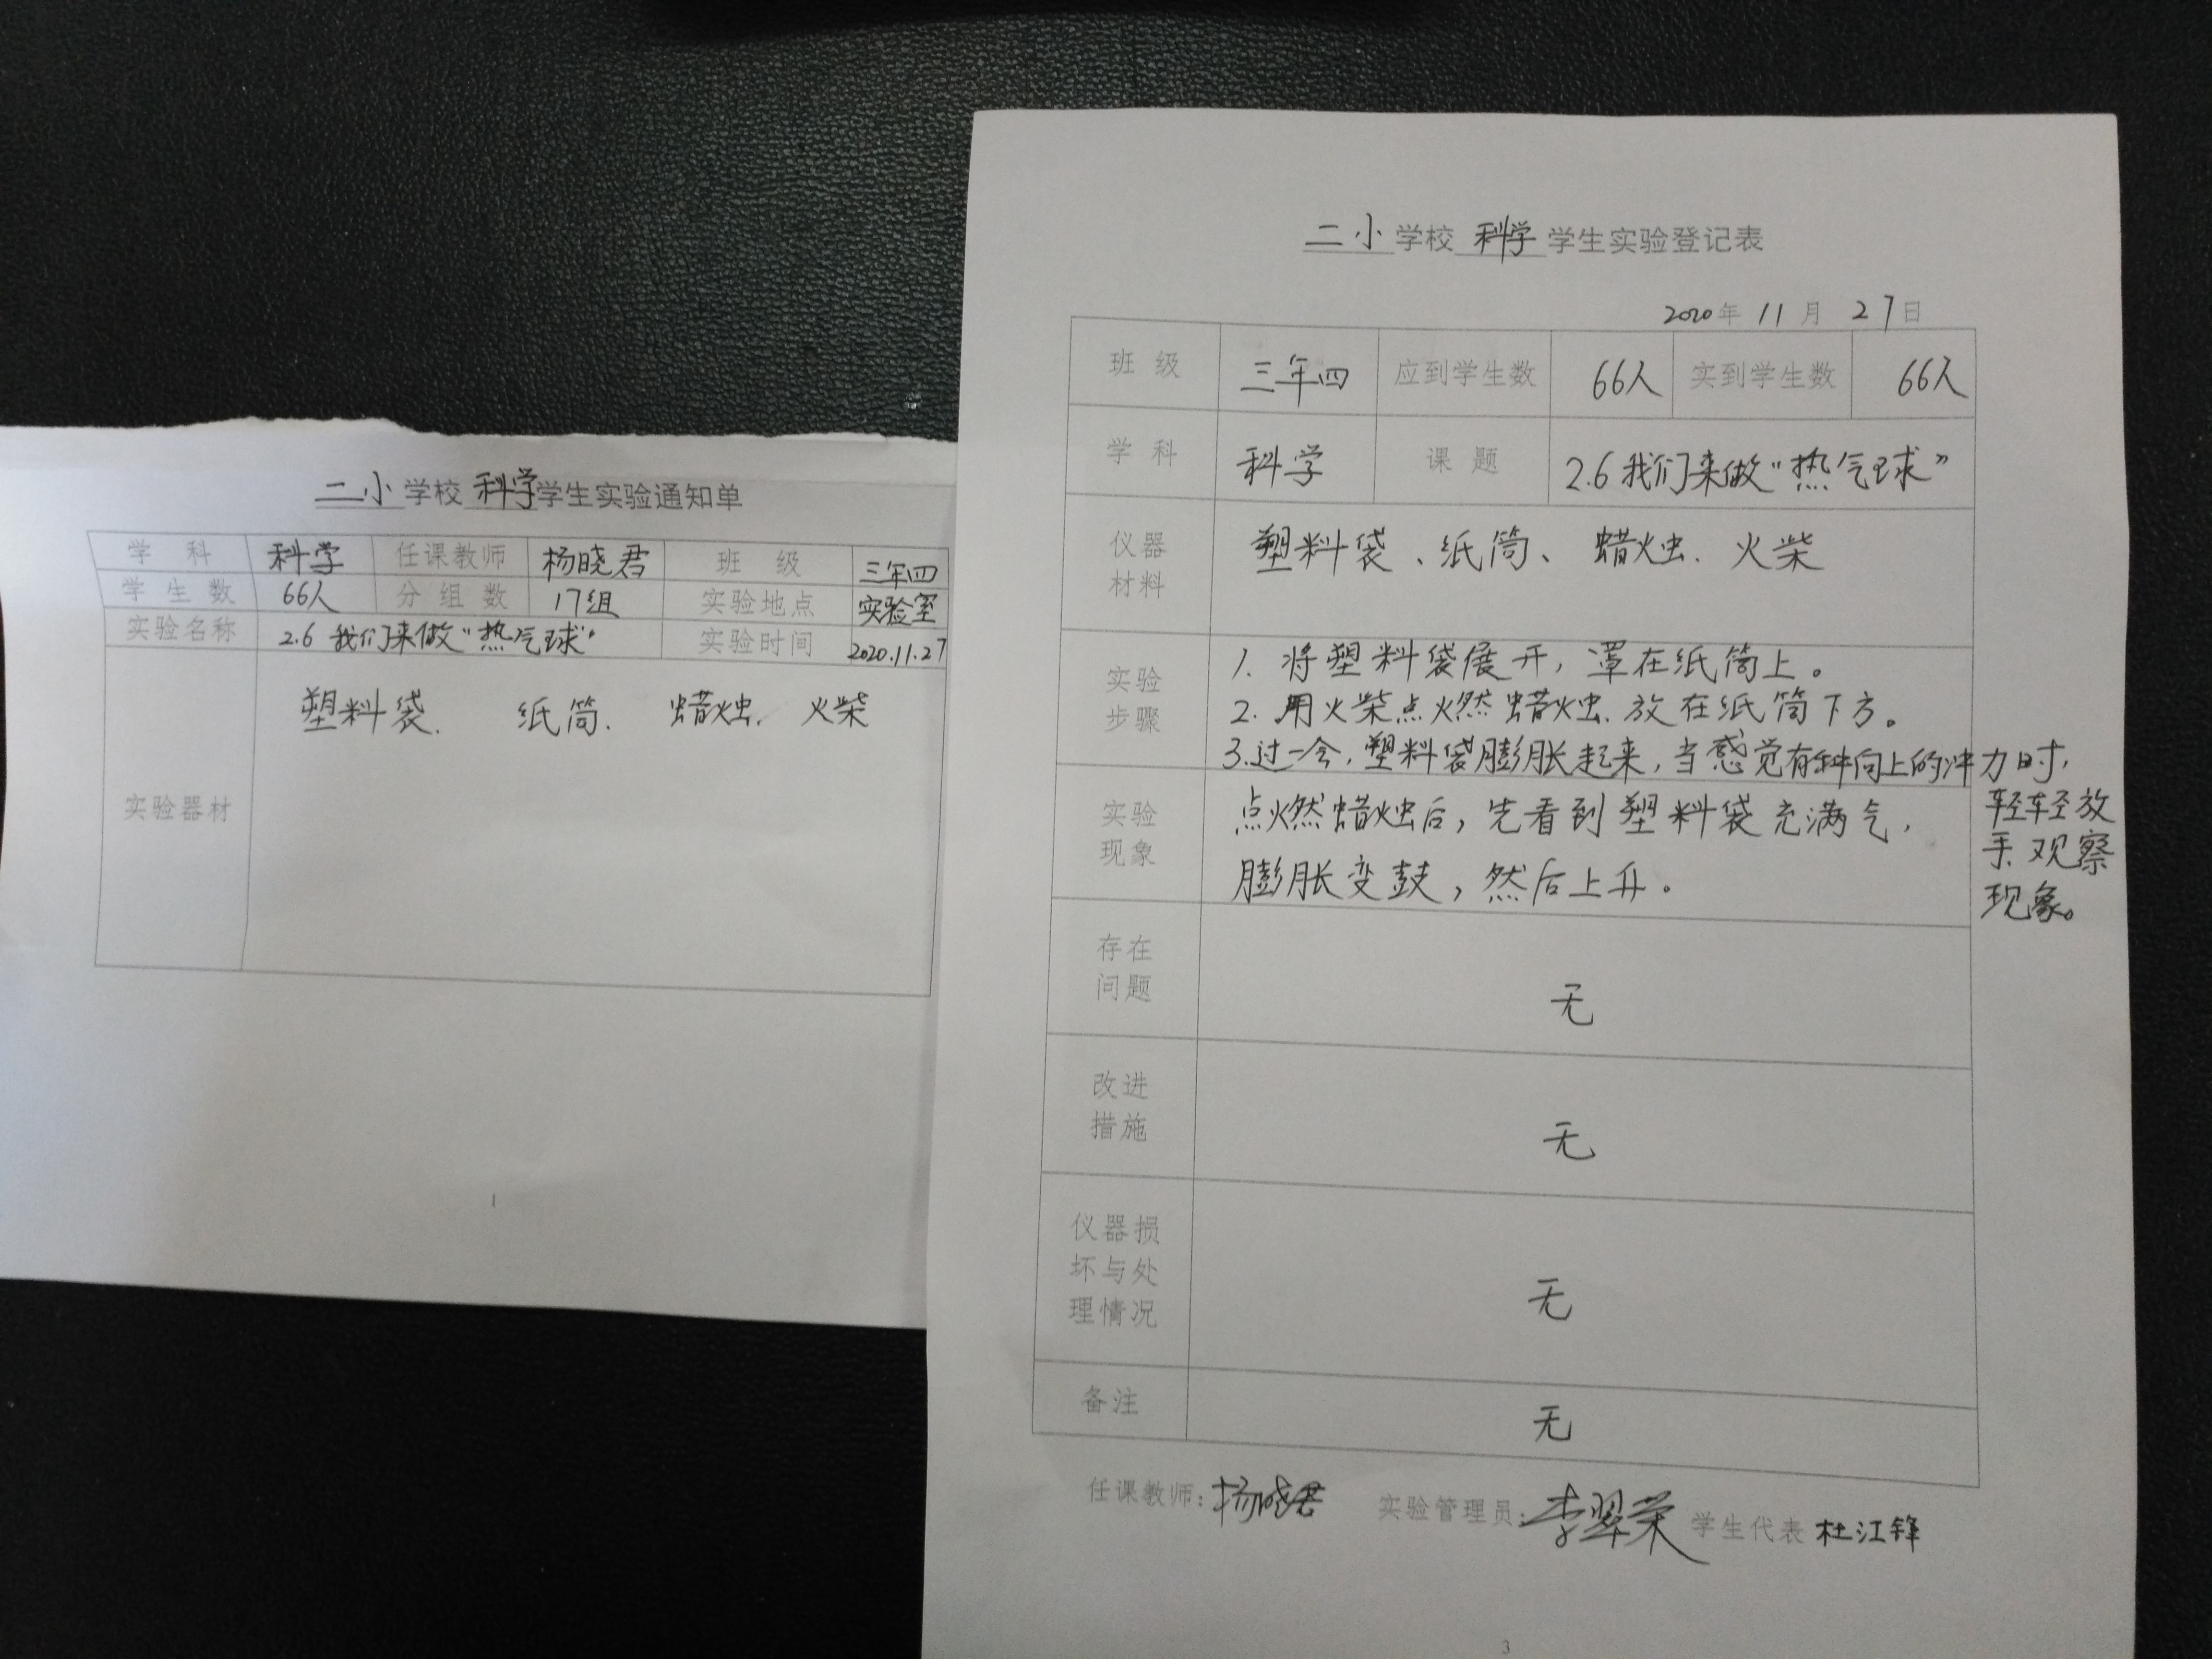 二小学校科学学生实验通知单
学 科 科学 任课教师 杨晓君 班 级 三年四
学生数 66人 分组数 17组 实验地点 实验室
实验名称 2.6 我们来做“热气球” 实验时间 2020.11.27
实验器材 塑料袋. 纸筒. 蜡烛. 火柴
1
二小学校科学学生实验登记表
2020年 11月 27日
班 级 三年四 应到学生数 66人 实到学生数 66人
学 科 科学 课 题 2.6 我们来做“热气球”
仪器
材料
塑料袋、纸筒、蜡烛. 火柴
实验
步骤
1. 将塑料袋展开,罩在纸筒上。
2. 用火柴点火然蜡烛. 放在纸筒下方。
3.过一会,塑料袋膨胀起来,当感觉有种向上的冲力时,
轻轻放
手.观察
现象。
实验
现象
点燃蜡烛后,先看到塑料袋充满气,
膨胀变鼓,然后上升。
存在
问题
无
改进
措施
无
仪器损
坏与处
理情况
无
备注 无
任课教师:杨晓君 实验管理员:李翠荣 学生代表 杜江锋
3